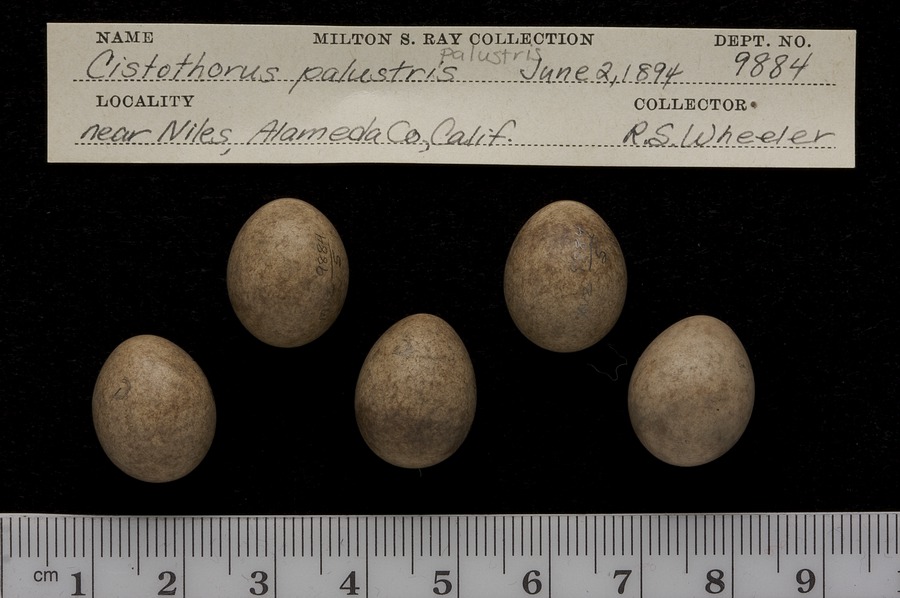 NAME MILTON S. RAY COLLECTION DEPT. NO.
palustris
Cistothorus palustris June 2, 1894 9884
LOCALITY COLLECTOR
near Niles, Alameda Co., Calif. R.S. Wheeler
9884
5
5
cm 1 2 3 4 5 6 7 8 9